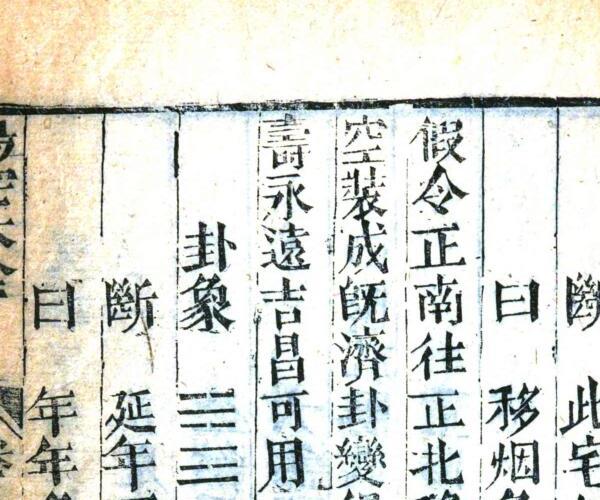 斷 此宅
曰 移烟
假令正南往正北
空裝成既濟卦變
壽永遠吉昌可用
卦象
斷 延年
曰 年年